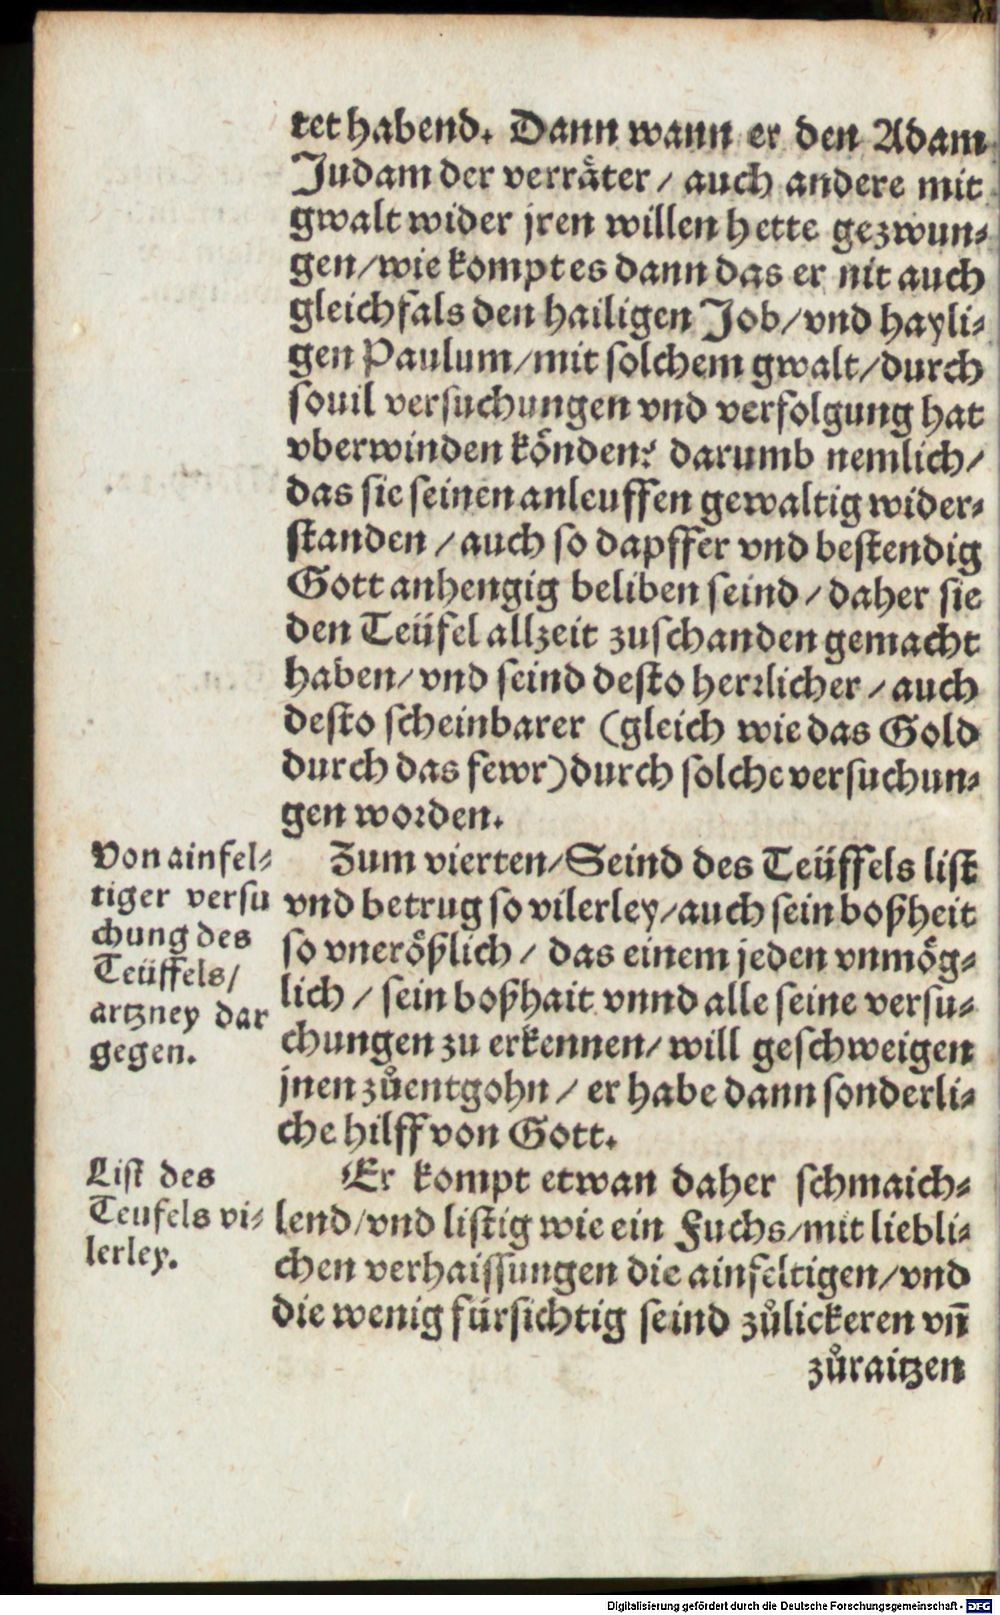 tet habend. Dann wann er den Adam
Judam der verräter / auch andere mit
gwalt wider jren willen hette gezwun⸗
gen / wie kompt es dann das er nit auch
gleichfals den hailigen Job / vnd hayli⸗
gen Paulum / mit solchem gwalt / durch
souil versuchungen vnd verfolgung hat
vberwinden könden? darumb nemlich /
das sie seinen anleuffen gewaltig wider⸗
standen / auch so dapffer vnd bestendig
Gott anhengig beliben seind / daher sie
den Teüfel allzeit zuschanden gemacht
haben / vnd seind desto herꝛlicher / auch
desto scheinbarer (gleich wie das Gold
durch das fewr) durch solche versuchun⸗
gen woꝛden.
Von ainfel⸗
tiger versu
chung des
Teüffels /
artzney dar
gegen.
Zum vierten / Seind des Teüffels list
vnd betrug so vilerley / auch sein boßheit
so vnerößlich / das einem jeden vnmög⸗
lich / sein boßhait vnnd alle seine versu⸗
chungen zu erkennen / will geschweigen
jnen zůentgohn / er habe dann sonderli⸗
che hilff von Gott.
List des
Teufels vi⸗
lerley.
Er kompt etwan daher schmaich⸗
lend / vnd listig wie ein Fuchs / mit liebli⸗
chen verhaissungen die ainfeltigen / vnd
die wenig fürsichtig seind zůlickeren vñ
zůraitzen
Digitalisierung gefördert durch die Deutsche Forschungsgemeinschaft - DFG